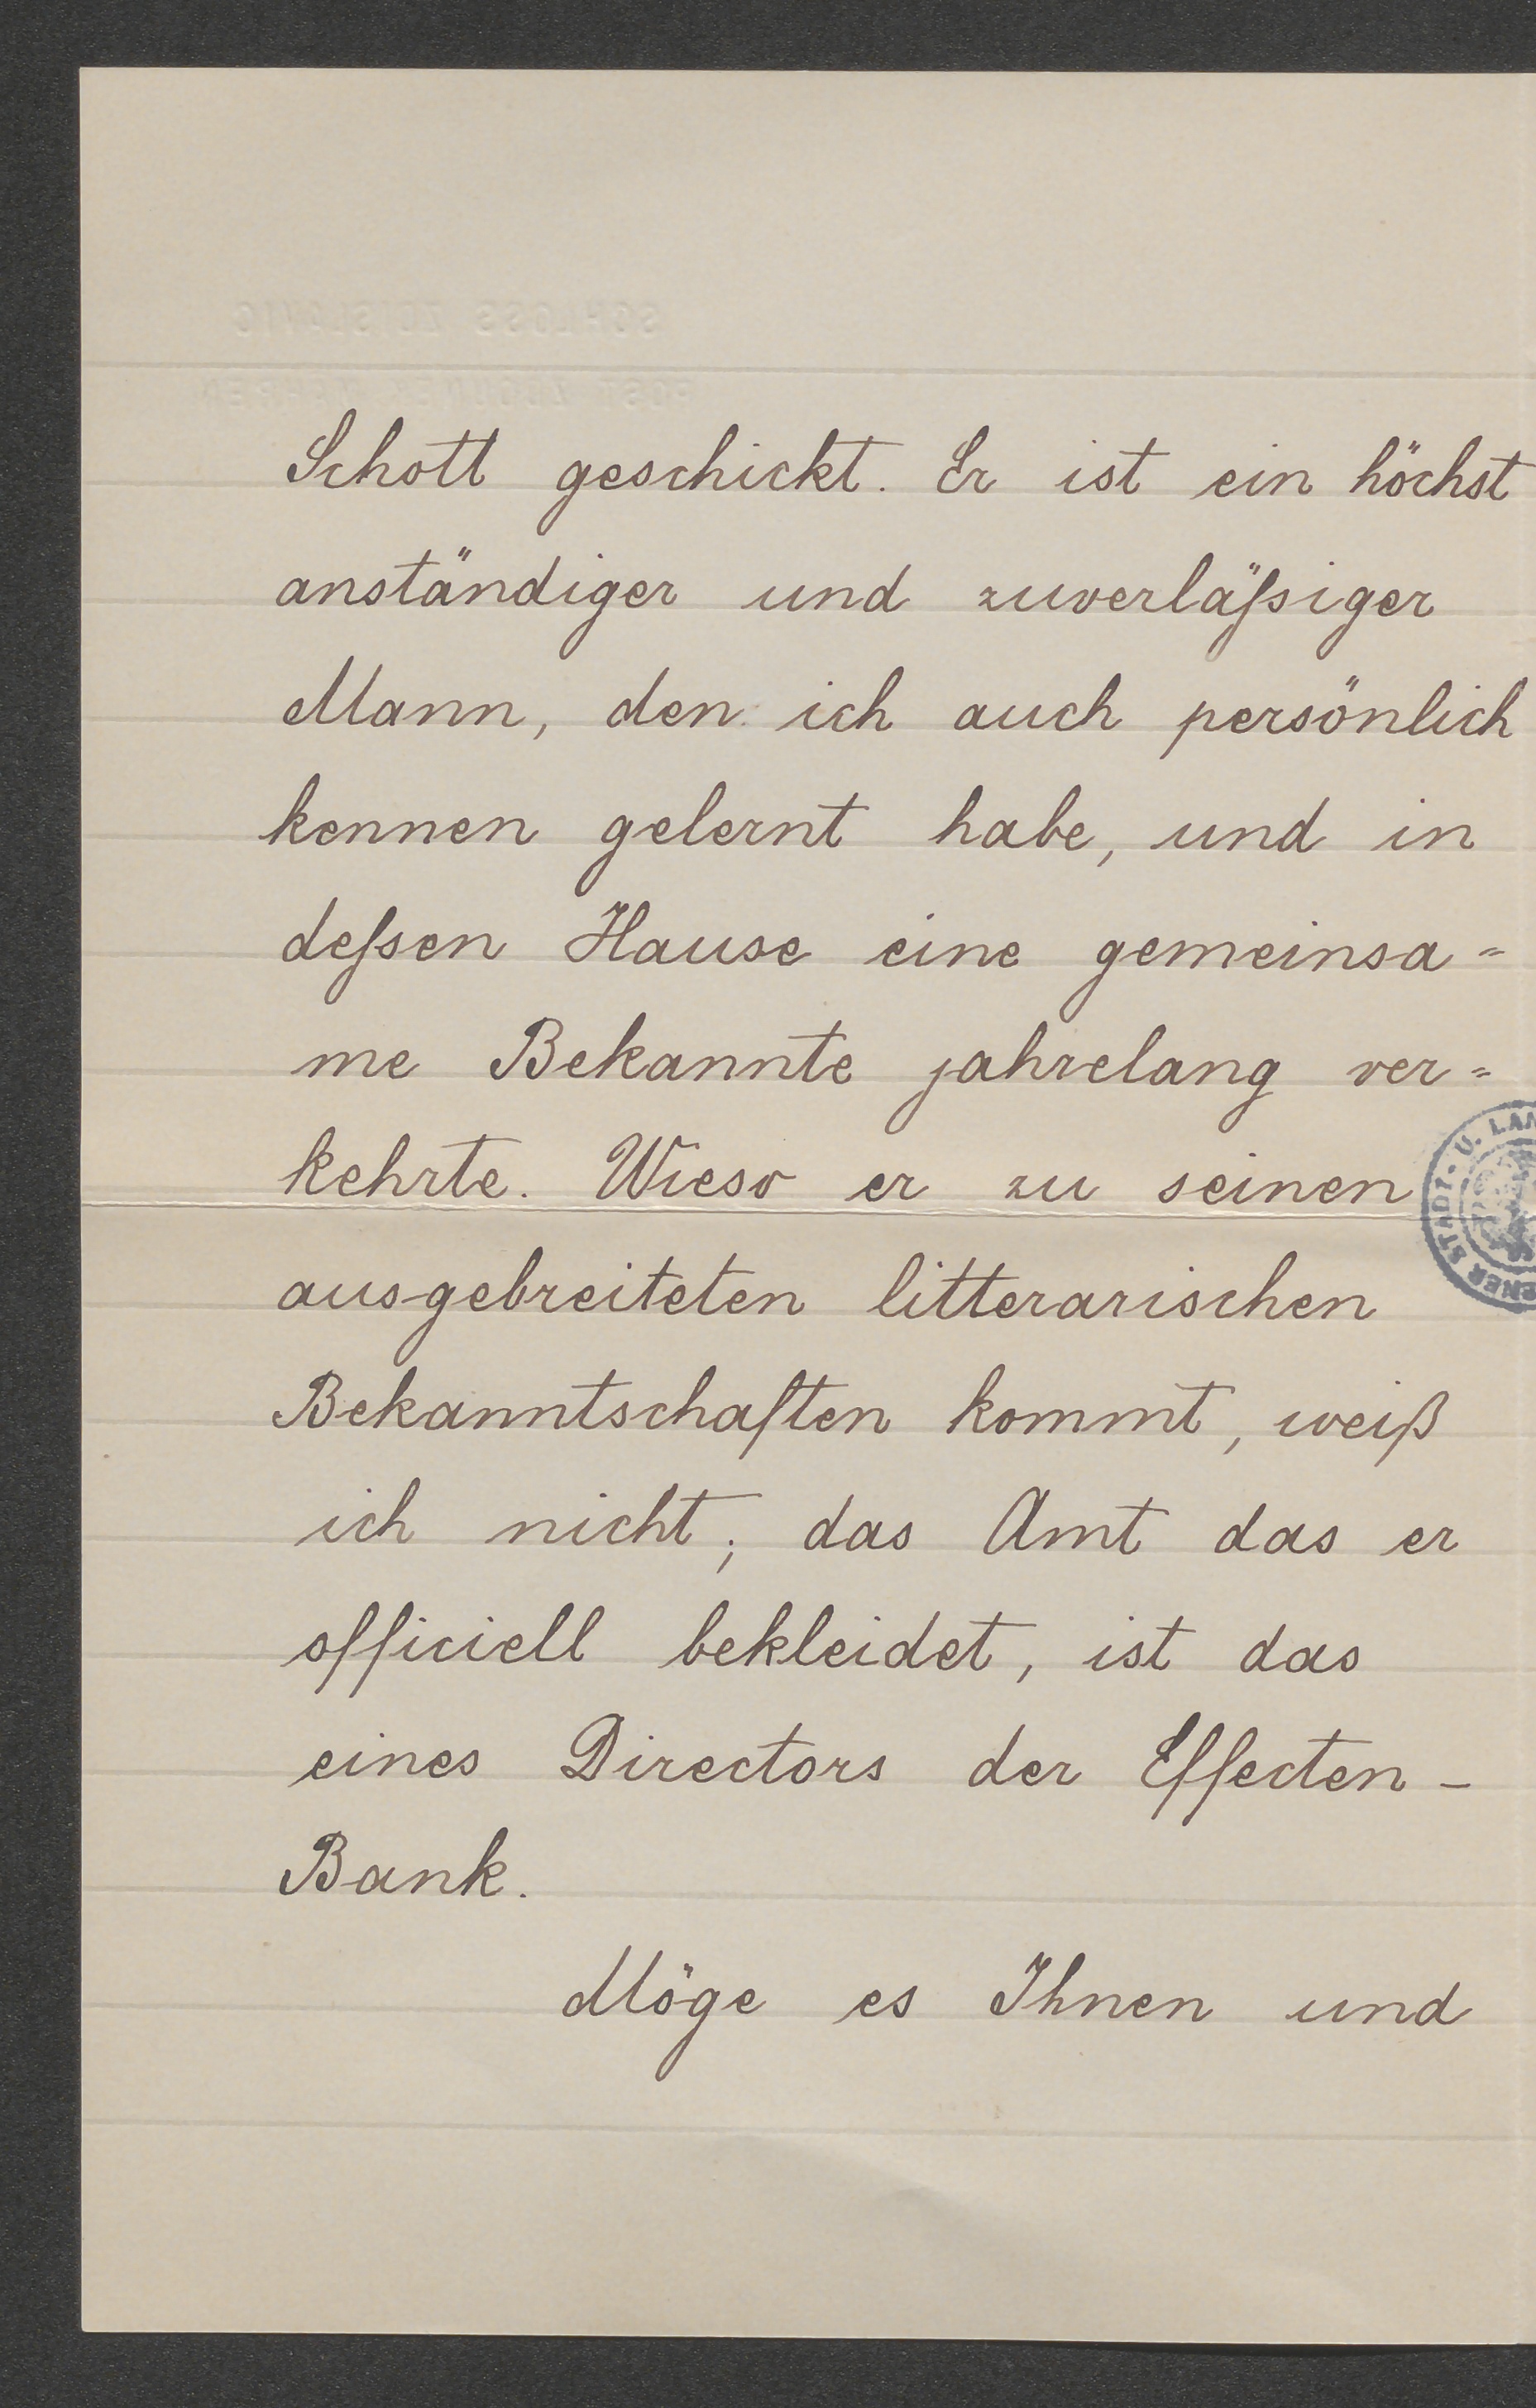 SCHLOSS ZDISLAVIC
Schott geschickt. Er ist ein höchst
anständiger und zuverläſsiger
Mann, den ich auch persönlich
kennen gelernt habe, und in
deſsen Hause eine gemeinsa=
me Bekannte jahrelang ver=
kehrte. Wieso er zu seinen
ausgebreiteten litterarischen
Bekanntschaften kommt, weiß
ich nicht; das Amt das er
officiell bekleidet, ist das
eines Directors der Effecten-
Bank.
Möge es Ihnen und